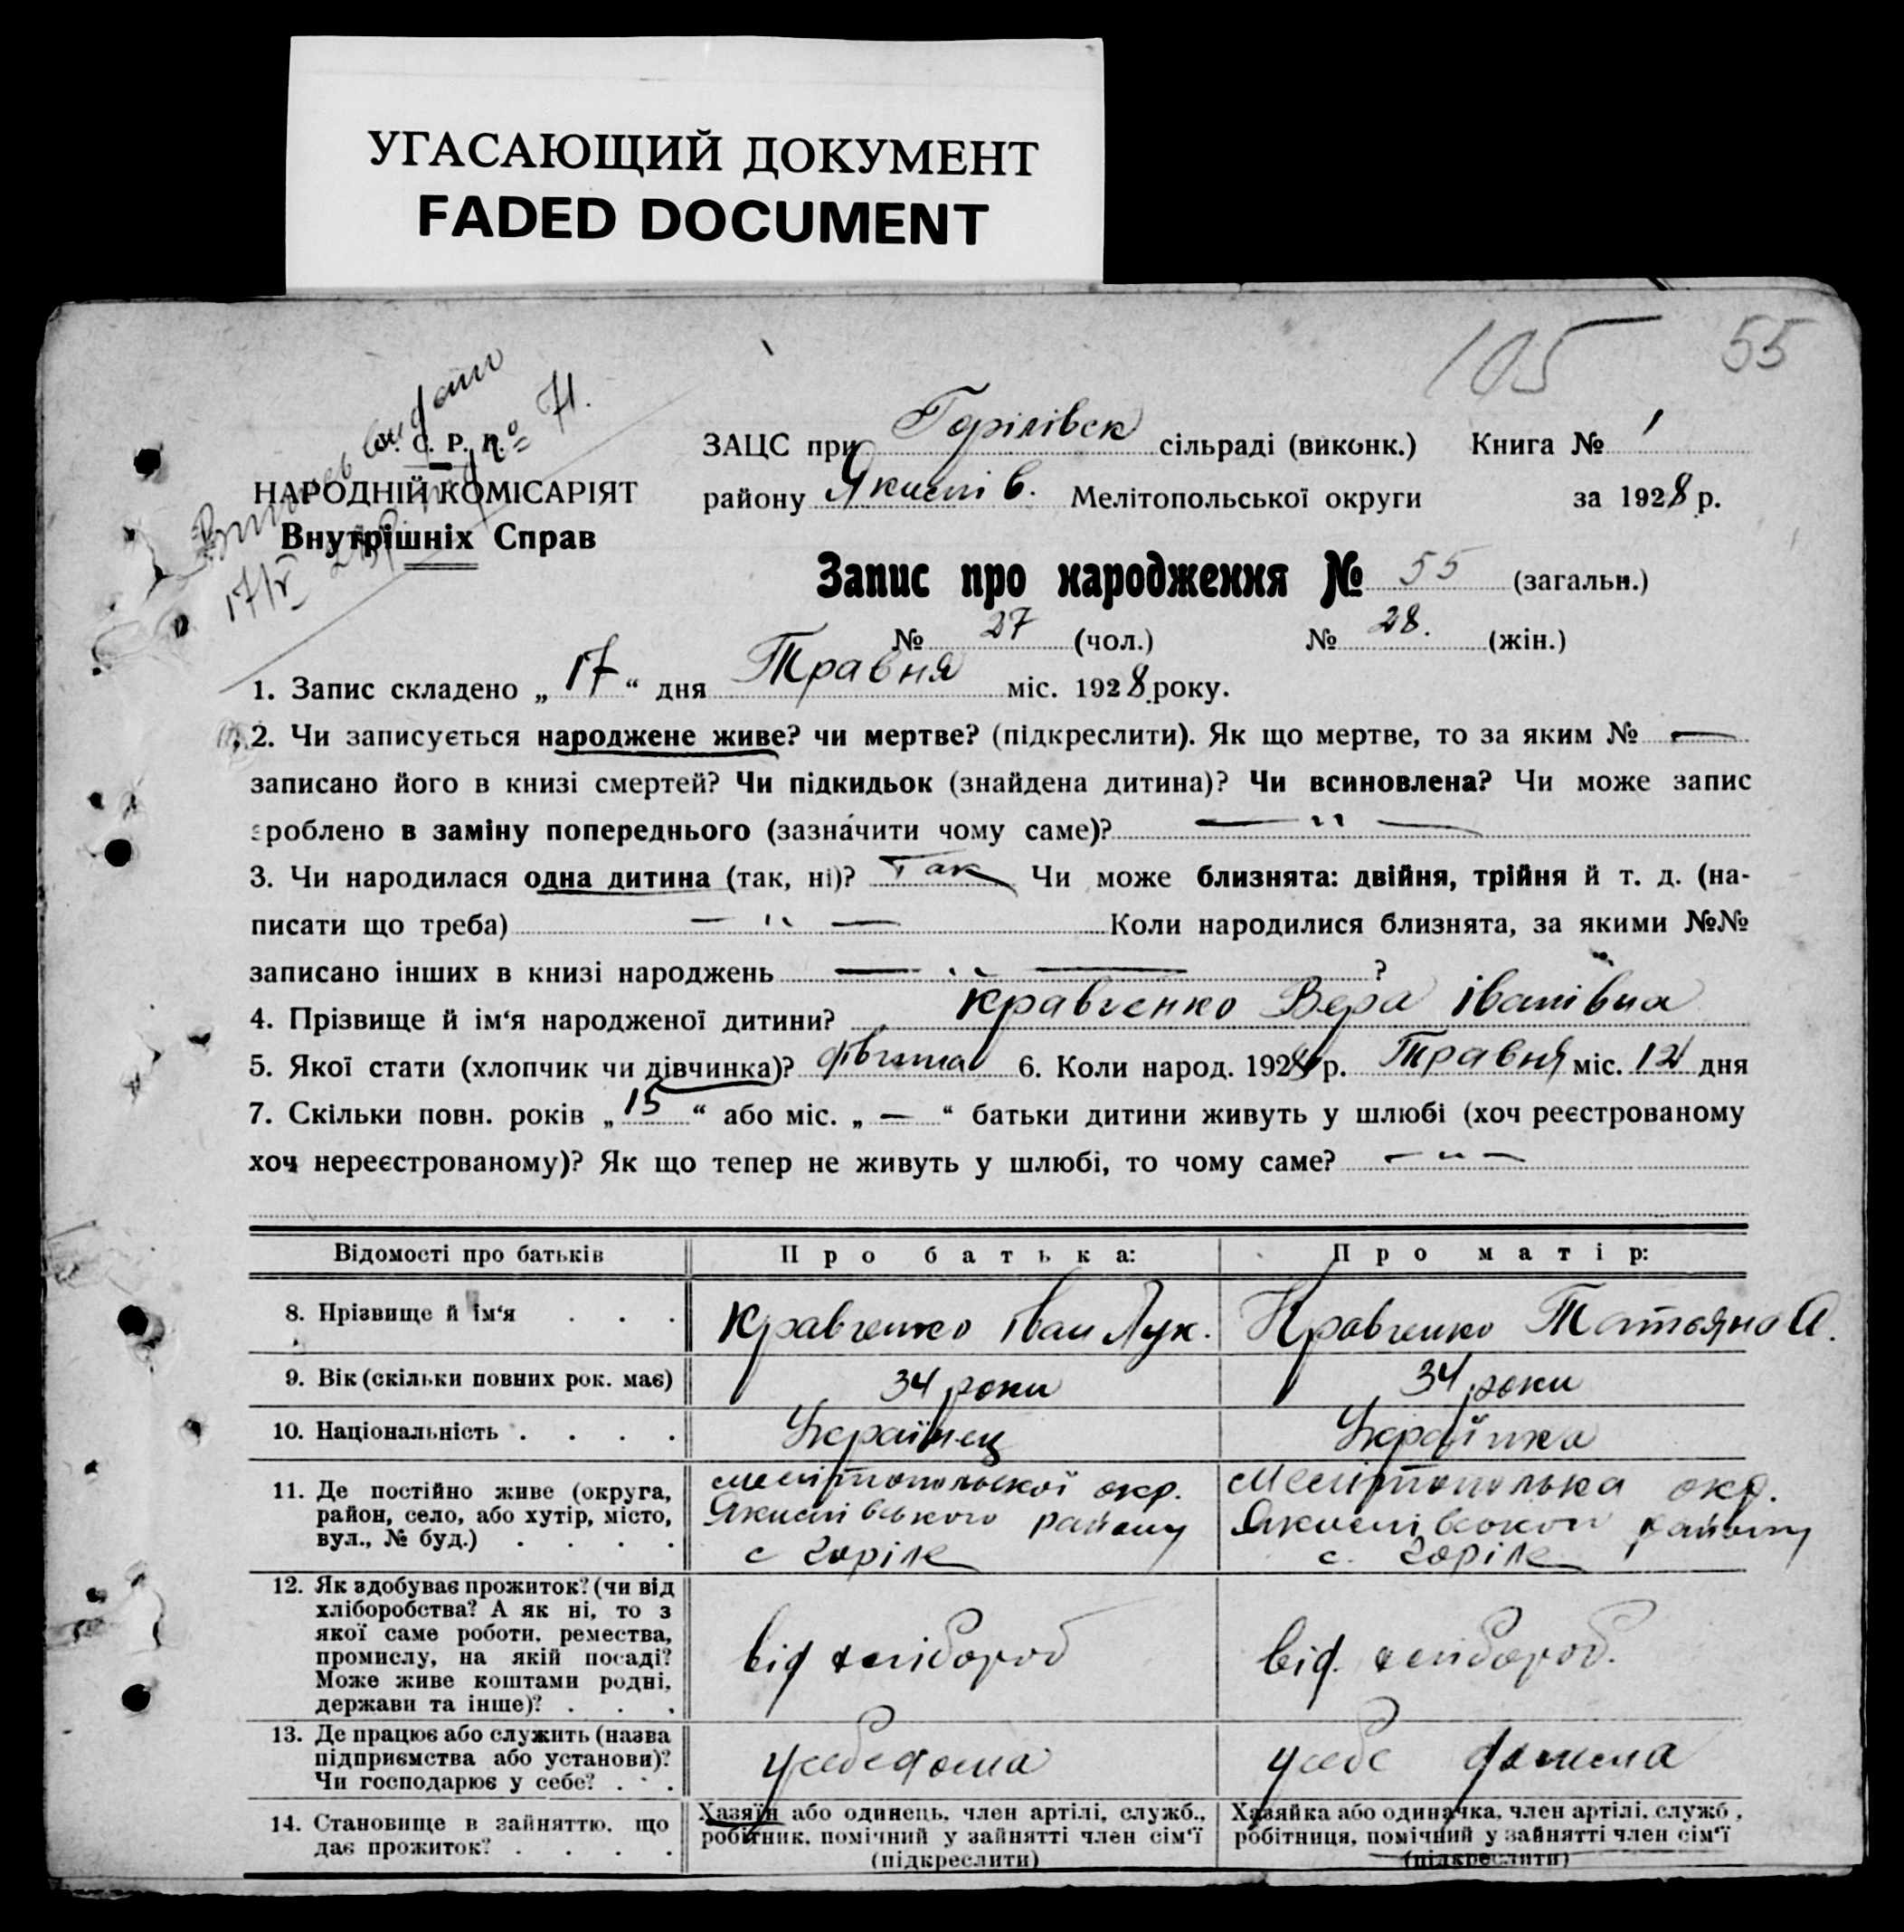 УГАСАЮЩИЙ ДОКУМЕНТ
FADED DOCUMENT
105 55
Р. Р.
НАРОДНІЙ КОМІСАРІЯТ
Внутрішніх Справ
№ 71.
17/V
ЗАЦС при Горілівск сільраді (виконк.) Книга № 1
району Якимів. Мелітопольської округи за 1928 р.
Запис про народження № 55 (загальн.)
№ 27 (чол.) № 28. (жін.)
1. Запис складено „ 17 “ дня Травня міс. 1928 року.
2. Чи записується народжене живе? чи мертве? (підкреслити). Як що мертве, то за яким № —
записано його в книзі смертей? Чи підкидьок (знайдена дитина)? Чи всиновлена? Чи може запис
зроблено в заміну попереднього (зазначити чому саме)? — " —
3. Чи народилася одна дитина (так, ні)? Так Чи може близнята: двійня, трійня й т. д. (на-
писати що треба) — " — Коли народилися близнята, за якими №№
записано інших в книзі народжень — " — ?
4. Прізвище й ім‘я народженої дитини? Кравченко Вера Іванівна
5. Якої стати (хлопчик чи дівчинка)? 6. Коли народ. 1928 р. Травня міс. 12 дня
7. Скільки повн. років „ 15 “ або міс. „ — “ батьки дитини живуть у шлюбі (хоч реєстрованому
хоч нереєстрованому)? Як що тепер не живуть у шлюбі, то чому саме? — " —
Відомості про батьків Про батька: Про матір:
8. Прізвище й ім‘я . . . Кравченко Іван Лук. Кравченко Татьяна А.
9. Вік (скільки повних рок. має) 34 роки 34 роки
10. Національність . . . . Українец Українка
11. Де постійно живе (округа, Мелітопольскої окр. Мелітополька окр.
район, село, або хутір, місто, Якимівського району Якимівського району
вул., № буд.) . . . . с Горіле с. Горіле
12. Як здобуває прожиток? (чи від
хліборобства? А як ні, то з
якої саме роботи, ремества,
промислу, на якій посаді? від хлібороб від. хлібороб.
Може живе коштами родні,
держави та інше)? . . .
13. Де працює або служить (назва
підприємства або установи)? у себе дома у себе
Чи господарює у себе? . . .
14. Становище в зайняттю, що Хазяїн або одинець, член артілі, служб., Хазяйка або одиначка, член артілі, служб.,
дає прожиток? . . . . робітник, помічний у зайнятті член сім‘ї робітниця, помічний у зайнятті член сім‘ї
(підкреслити) (підкреслити)